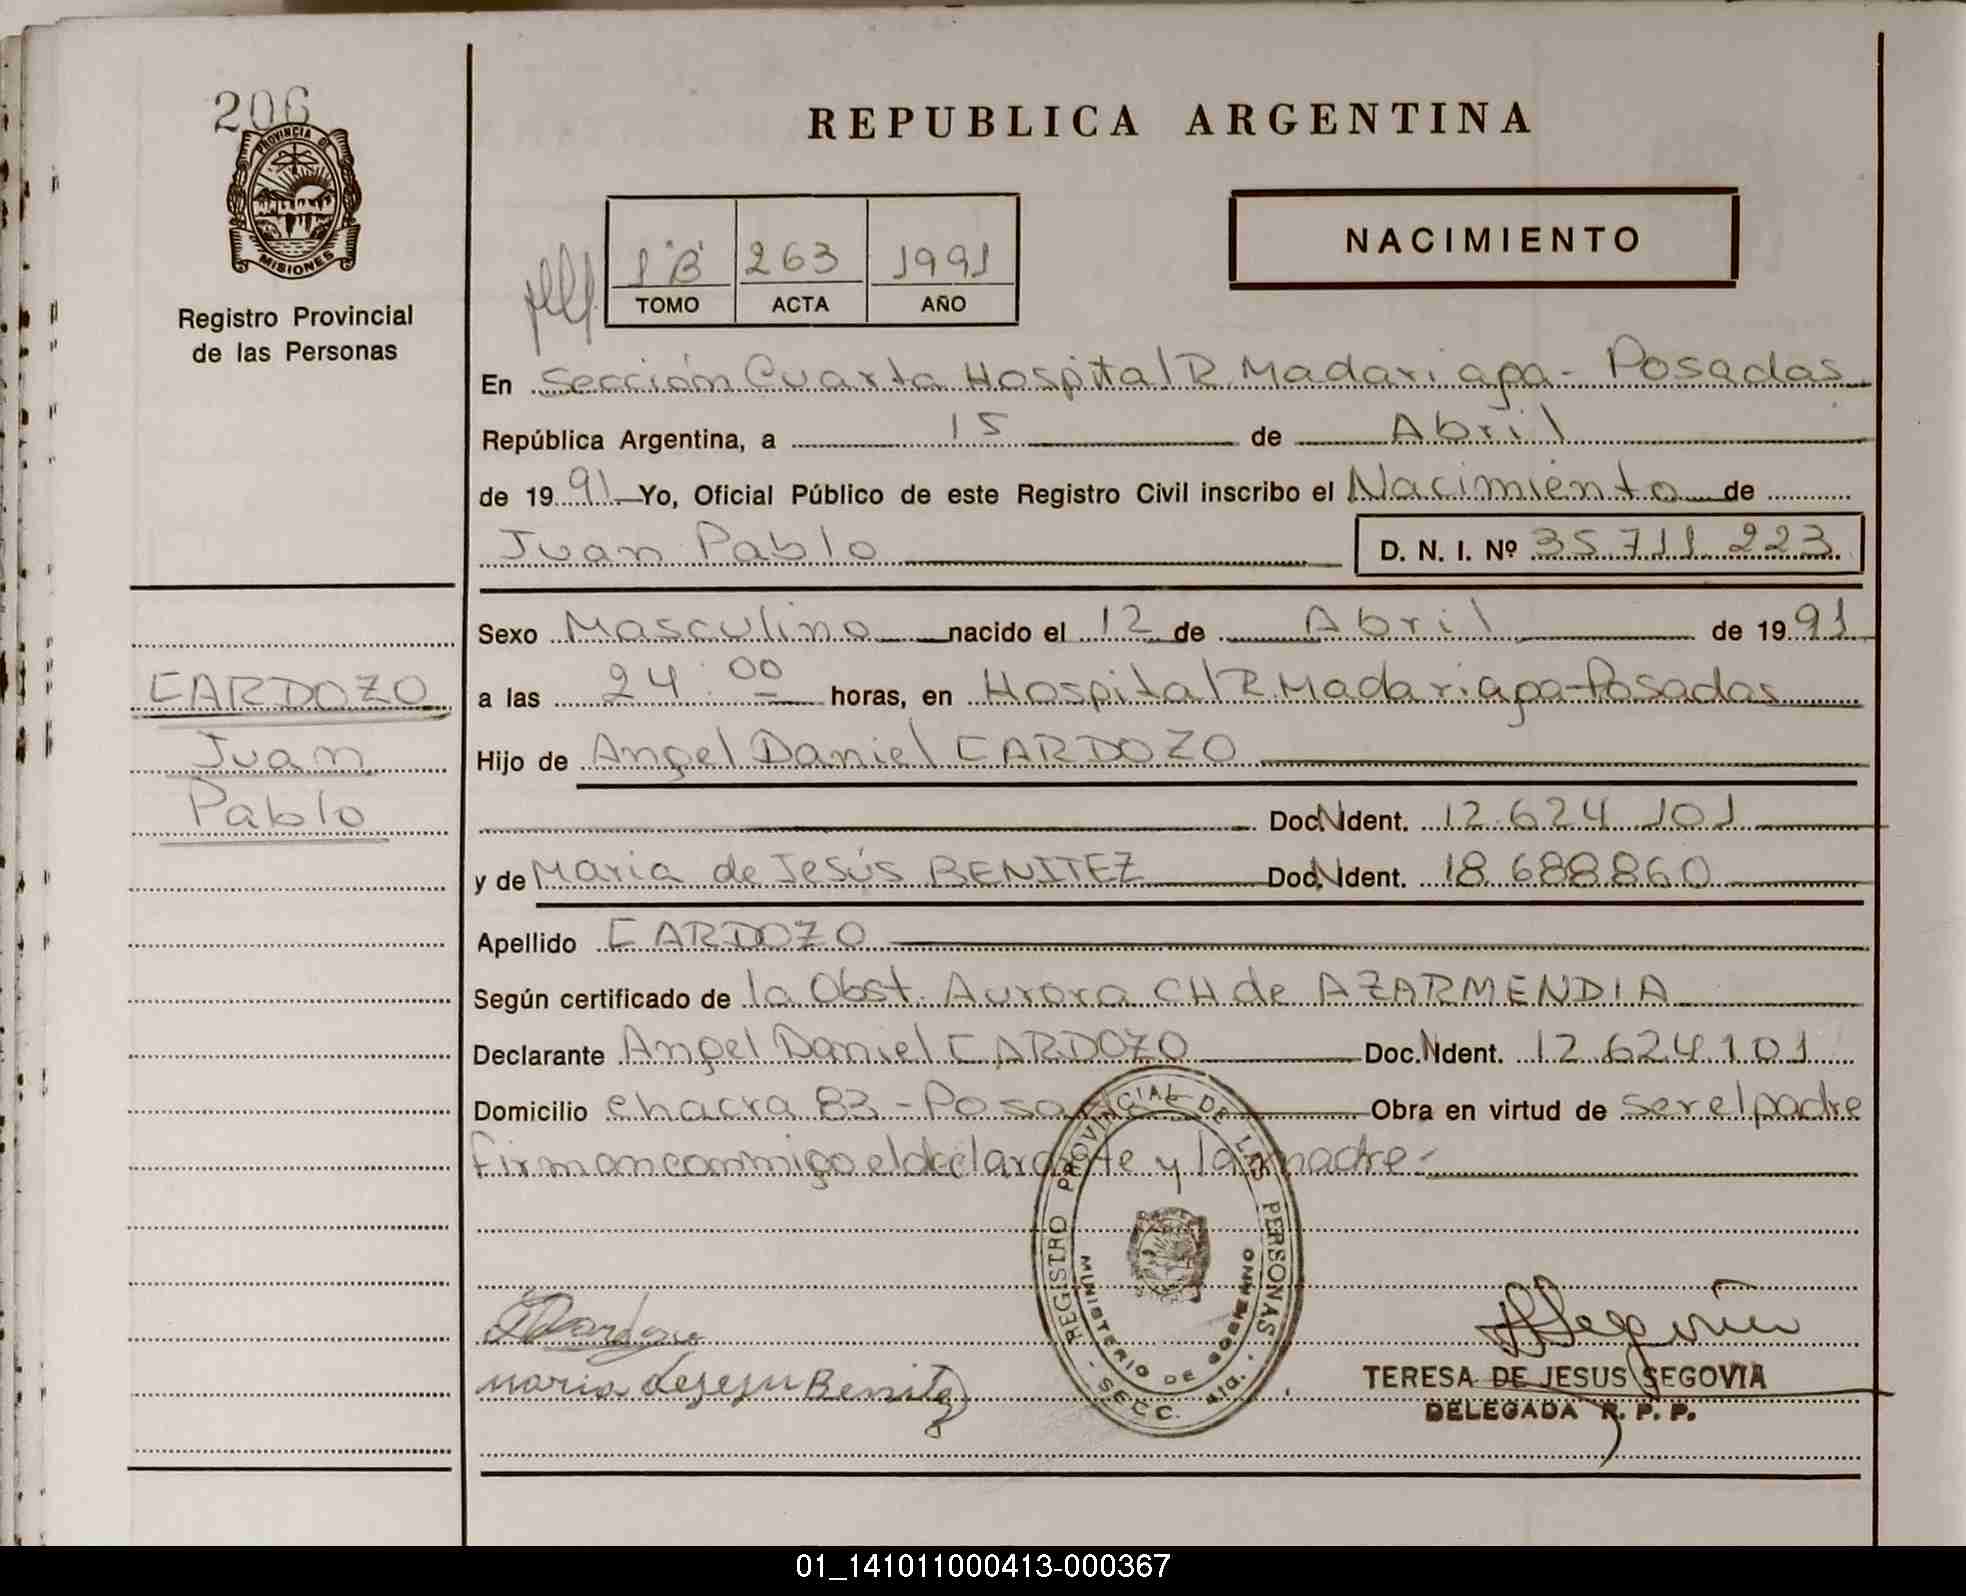 206
PROVINCIA DE
MISIONES
Registro Provincial
de las Personas
REPUBLICA ARGENTINA
1 "B" 263 1991
TOMO ACTA AÑO
NACIMIENTO
En Sección Cuarta Hospital R. Madariaga - Posadas
República Argentina, a 15 de Abril
de 1991 Yo, Oficial Público de este Registro Civil inscribo el Nacimiento de
Juan Pablo D. N. I. Nº 35.711.223
Sexo Masculino nacido el 12 de Abril de 1991
CARDOZO
Juan
Pablo
a las 24:00 horas, en Hospital R. Madariaga-Posadas
Hijo de Angel Daniel CARDOZO
Doc. N Ident. 12.624.101
y de Maria de Jesús BENITEZ Doc. N Ident. 18.688.860
Apellido CARDOZO
Según certificado de la Obst. Aurora CH de AZARMENDIA
Declarante Angel Daniel CARDOZO Doc. N Ident. 12.624.101
Domicilio chacra 83 - Posadas Obra en virtud de ser el padre
firman conmigo el declarante y la madre.-
REGISTRO PROVINCIAL DE LAS PERSONAS
MINISTERIO DE GOBIERNO
- SECC. 4ta. -
Cardozo
maria dejesu Benitez
Segovia
TERESA DE JESUS SEGOVIA
DELEGADA R. P. P.
01_141011000413-000367